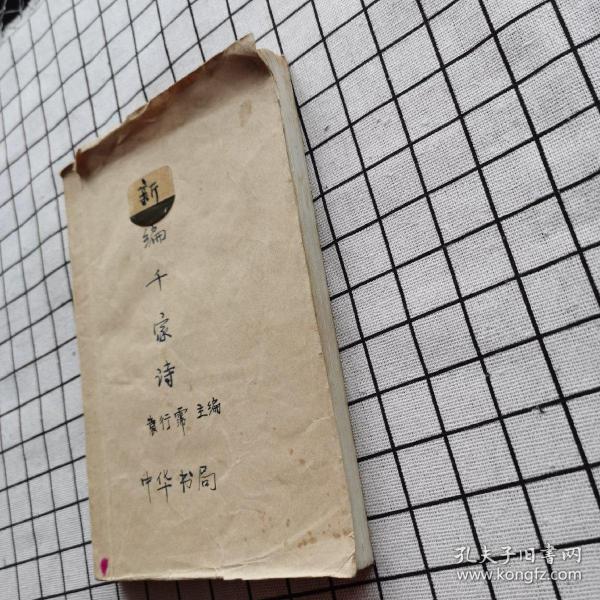 新编千家诗
袁行霈 主编
中华书局
孔夫子旧书网
www.kongfz.com